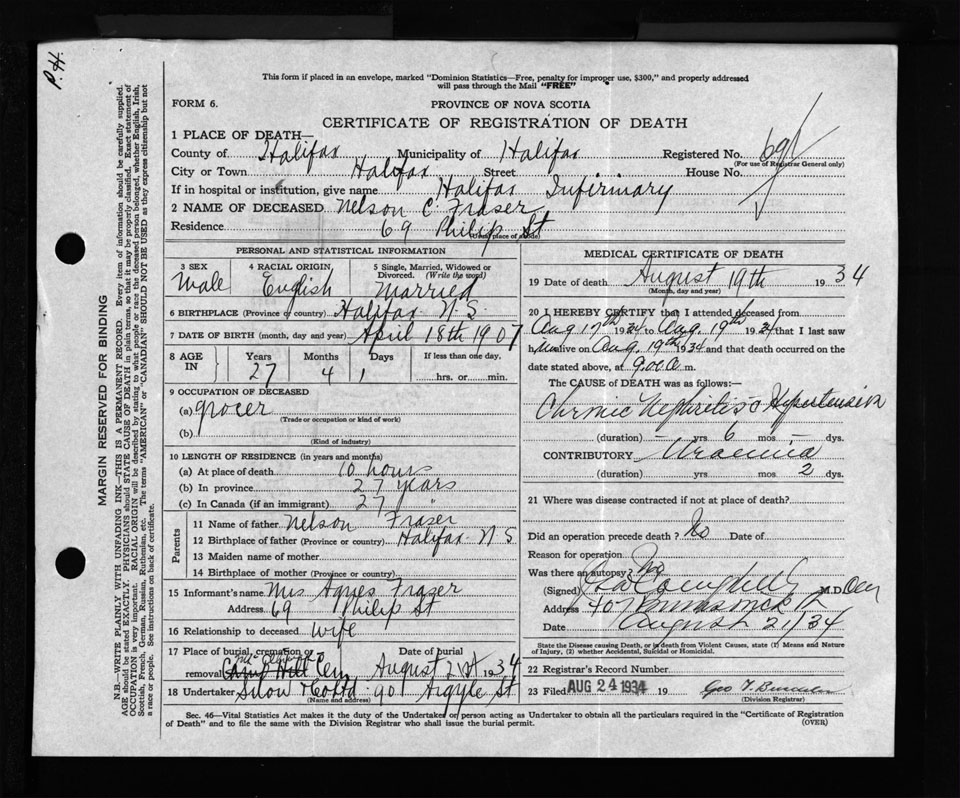 P.H.
This form if placed in an envelope, marked "Dominion Statistics—Free, penalty for improper use, $300," and properly addressed
will pass through the Mail "FREE"
FORM 6.
PROVINCE OF NOVA SCOTIA
CERTIFICATE OF REGISTRATION OF DEATH
1 PLACE OF DEATH—
County of Halifax Municipality of Halifax Registered No.
(For use of Registrar General only)
City or Town Halifax Street House No.
If in hospital or institution, give name Halifax Infirmary
2 NAME OF DECEASED Nelson C. Fraser
Residence 69 Philip St
(Usual place of abode)
PERSONAL AND STATISTICAL INFORMATION
3 SEX Male
4 RACIAL ORIGIN, English
5 Single, Married, Widowed or Divorced. (Write the word) Married
6 BIRTHPLACE (Province or country) Halifax N.S.
7 DATE OF BIRTH (month, day and year) April 18th 1907
8 AGE IN Years 27 Months 4 Days 1 If less than one day, hrs. or min.
9 OCCUPATION OF DECEASED
(a) grocer
(Trade or occupation or kind of work)
(b)
(Kind of industry)
10 LENGTH OF RESIDENCE (in years and months)
(a) At place of death 10 hours
(b) In province 27 years
(c) In Canada (if an immigrant) 27 "
Parents
11 Name of father Nelson Fraser
12 Birthplace of father (Province or country) Halifax N S
13 Maiden name of mother
14 Birthplace of mother (Province or country)
15 Informant's name Mrs Agnes Fraser
Address 69 Philip St
16 Relationship to deceased wife
17 Place of burial, cremation or removal Camp Hill Cem Date of burial August 21st 1934
18 Undertaker Snow & Co Ltd 90 Argyle St
(Name and address)
MEDICAL CERTIFICATE OF DEATH
19 Date of death August 19th 1934
(Month, day and year)
20 I HEREBY CERTIFY that I attended deceased from
Aug 17th 1934 to Aug. 19th 1934 that I last saw
him alive on Aug. 19th 1934 and that death occurred on the
date stated above, at 9.00 a m.
The CAUSE of DEATH was as follows:
Chronic Nephritis c Hypertension
(duration) — yrs 6 mos — dys.
CONTRIBUTORY Uraemia
(duration) yrs mos 2 dys.
21 Where was disease contracted if not at place of death?
Did an operation precede death? No Date of
Reason for operation
Was there an autopsy? No
(Signed) Campbell M.D.
Address 407 Brunswick
Date August 21/34
State the Disease causing Death, or in death from Violent Causes, state (1) Means and Nature of Injury, (2) whether Accidental, Suicidal or Homicidal.
22 Registrar's Record Number
23 Filed AUG 24 1934 19 Geo
(Division Registrar)
Sec. 46—Vital Statistics Act makes it the duty of the Undertaker or person acting as Undertaker to obtain all the particulars required in the "Certificate of Registration
of Death" and to file the same with the Division Registrar who shall issue the burial permit. (OVER)
MARGIN RESERVED FOR BINDING
N.B.—WRITE PLAINLY WITH UNFADING INK—THIS IS A PERMANENT RECORD. Every item of information should be carefully supplied.
AGE should be stated EXACTLY. PHYSICIANS should STATE CAUSE OF DEATH in plain terms, so that it may be properly classified. Exact statement of
OCCUPATION is very important. RACIAL ORIGIN will be described by stating to what people or race the deceased person belonged, whether English, Irish,
Scottish, French, German, Russian, Ruthenian, etc. The terms "AMERICAN" or "CANADIAN" SHOULD NOT BE USED as they express citizenship but not
a race or people. See instructions on back of certificate.